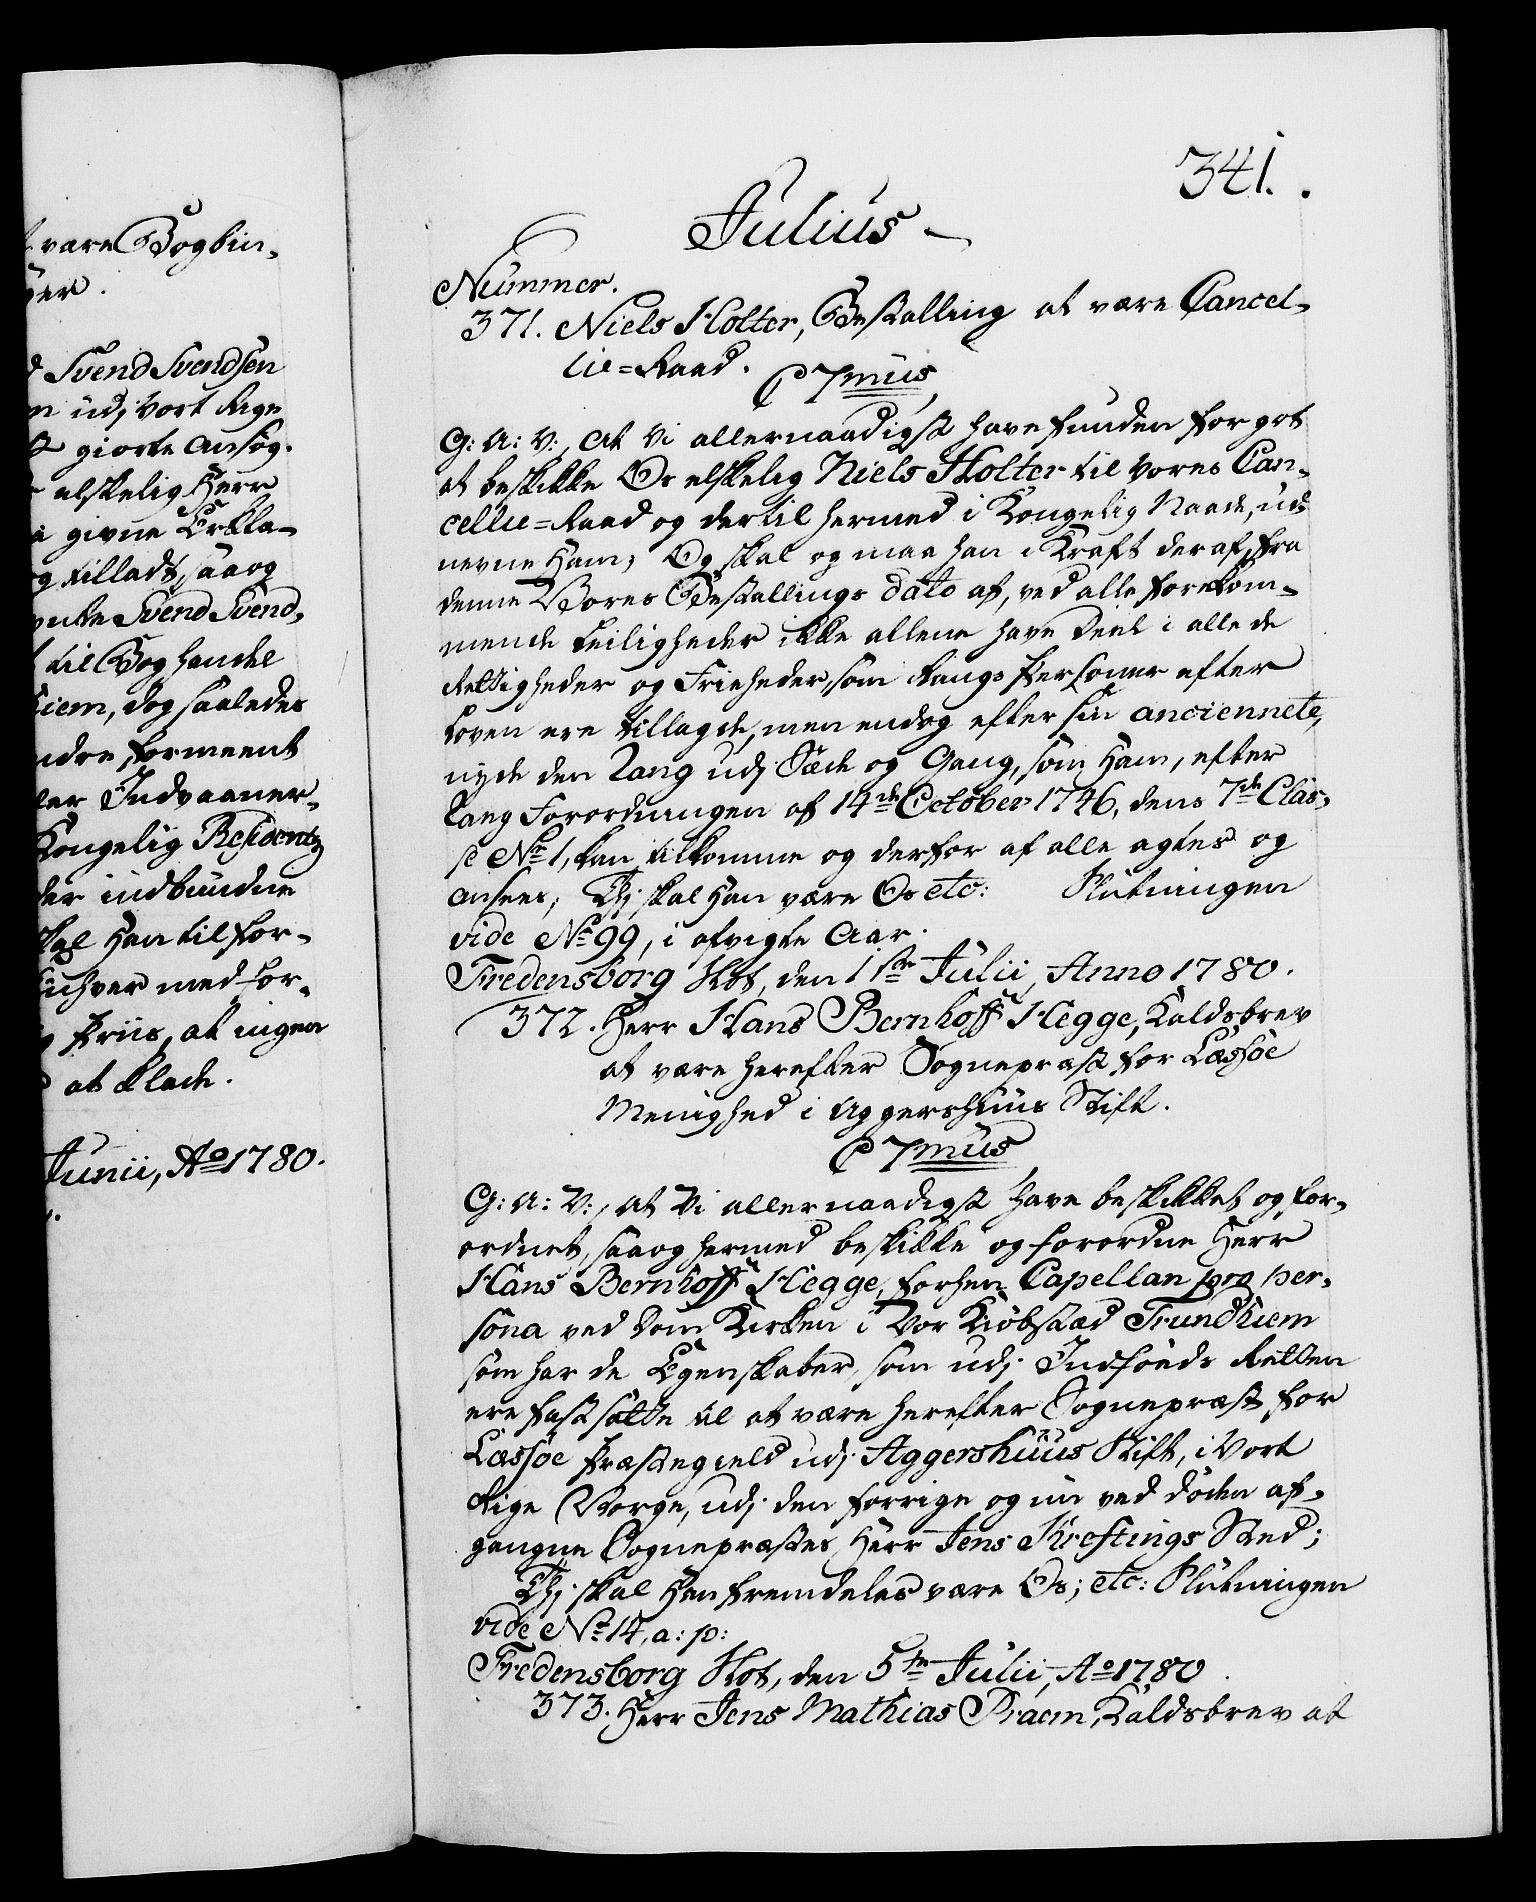 vare Bogbin-
der.
Svend Svendsen
udj Vort Rige
giorte Ansøg-
elskelig Herr
givne Erklæ-
tilladt, saa og
Svend Svend-
til Boghandel
hiem, dog saaledes
andre, formeent
Indvaaner-
Kongelig Residentz
indbundne
skal Han tilfor-
enhver med for-
Priis, at ingen
at klage.
Junii, Ao 1780.
341.
Julius
Nummer.
371. Niels Holter, Bestalling at være Cancel-
lie=Raad.
C 7mus
G: A: V:, at Vi allernaadigst have funden for got
at beskikke Os elskelig Niels Holter til Vores Can-
cellie=Raad og dertil hermed i Kongelig Naade, ud-
nevne Ham; Og skal og maa han i Kraft deraf, fra
denne Vores Bestallings dato af, ved alle forekom-
mende Leiligheder ikke allene have Deel i alle de
Rettigheder og Friheder, som Rangs Personer efter
Loven ere tillagde, men endog efter sin anciennete,
nyde den Rang udj Sæde og Gang, som Ham, efter
Rang Forordningen af 14de October 1746, dens 7de Clas-
se No 1, kan tilkomme og derfor af alle agtes og
ansees; Thj skal Han være Os etc: Slutningen
vide No 99, i afvigte Aar.
Fredensborg Slot, den 1ste Julii, Anno 1780.
372. Herr Hans Bernhoff Hegge, Kaldsbrev
at være herefter Sognepræst for Læssøe
Menighed i Aggershuus Stift.
C 7mus
G: A: V:, at Vi allernaadigst have beskikket og for-
ordnet, saa og hermed beskikke og forordne Herr
Hans Bernhoff Hegge, forhen Capellan pro per-
sona ved Dom Kirken i Vor Kiøbstæd Trundhiem
som har de Egenskaber, som udj Indføeds Retten
ere fastsatte til at være herefter Sognepræst for
Læssøe Præstegield udj Aggershuus Stift, i Vort
Rige Norge, udj den forrige og nu ved døden af-
gangne Sognepræstes Herr Jens Kreftings Sted;
Thj skal Han fremdeles være Os; etc: Slutningen
vide No 14, a: p:
Fredensborg Slot, den 5te Julii, Ao 1780.
373. Herr Jens Mathias Praem, Kaldsbrev at